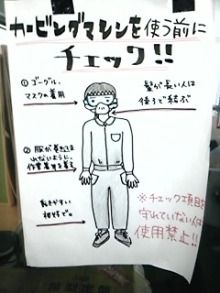 カービングマシンを使う前に
チェック!!
①ゴーグル、
マスクの着用
髪が長い人は
後ろで結ぶ
②服が巻き込ま
れないように、
作業着を着る
動きやすい
※チェック項目を
守れていない人は
使用禁止!!